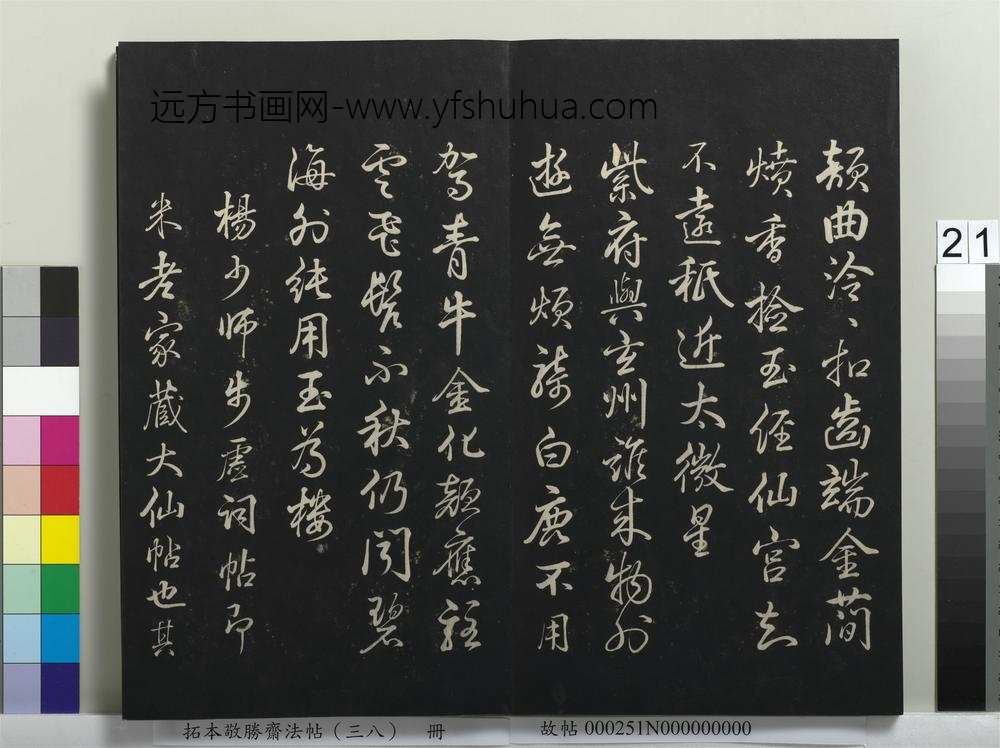 曲泠泠扣齒端金蕳
燌香撿玉經仙宮知
不遠秖近太微星
紫府與玄州誰來物外
遊無煩騎白鹿不用
駕青牛金化顏應駐
雲飛鬢不秋仍聞碧
海外純用玉為樓
楊少師步虛詞帖即
米老家藏大仙帖也其
远方书画网-www.yfshuhua.com
21
拓本敬勝齋法帖（三八） 冊
故帖 000251N000000000